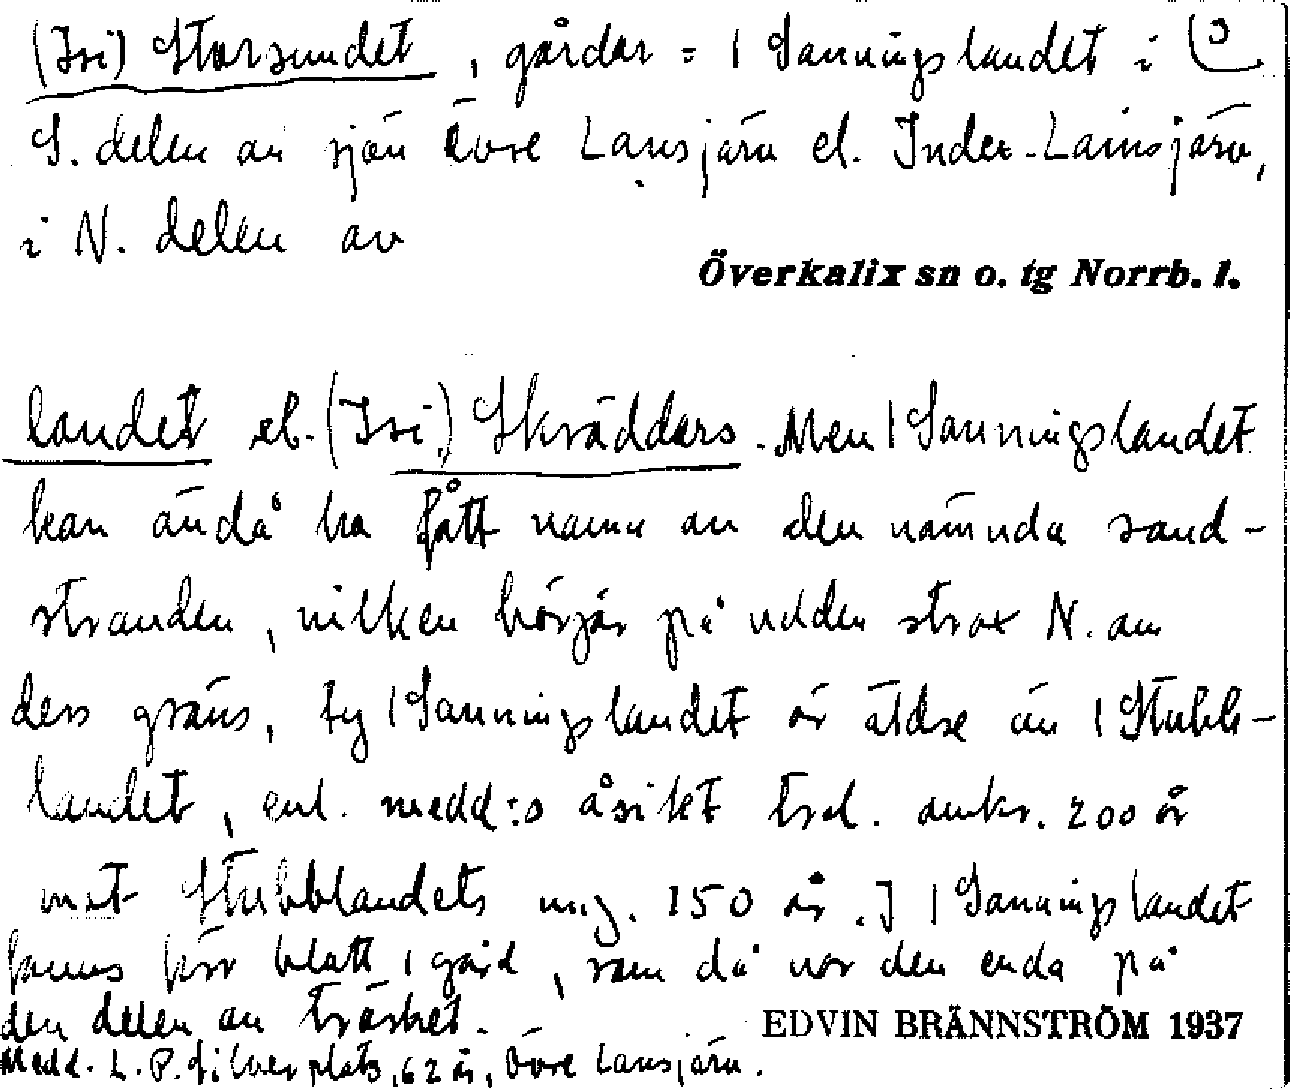 (Isi) Storsundet, gårdar = | Sanningslandet i (3
S. delen av sjön Övre Lansjärv el. Inder-Lainsjärv,
i N. delen av
Överkalix sn o. tg Norrb. l.
landet el. (Isi) Skräddars. Men | Sanningslandet
kan ändå ha fått namn av den nämnda sand-
stranden, vilken börjar på udden strax N. om
dess gräns, ty | Sanningslandet är äldre än | Stubb-
landet, enl. medd:s åsikt trol. omkr. 200 år
mot Stubblandets ung. 150 år. I | Sanningslandet
fanns förr blott 1 gård, som då var den enda på
den delen av träsket.
EDVIN BRÄNNSTRÖM 1937
Medd. L. P. Silverplats, 62 år, Övre Lansjärv.